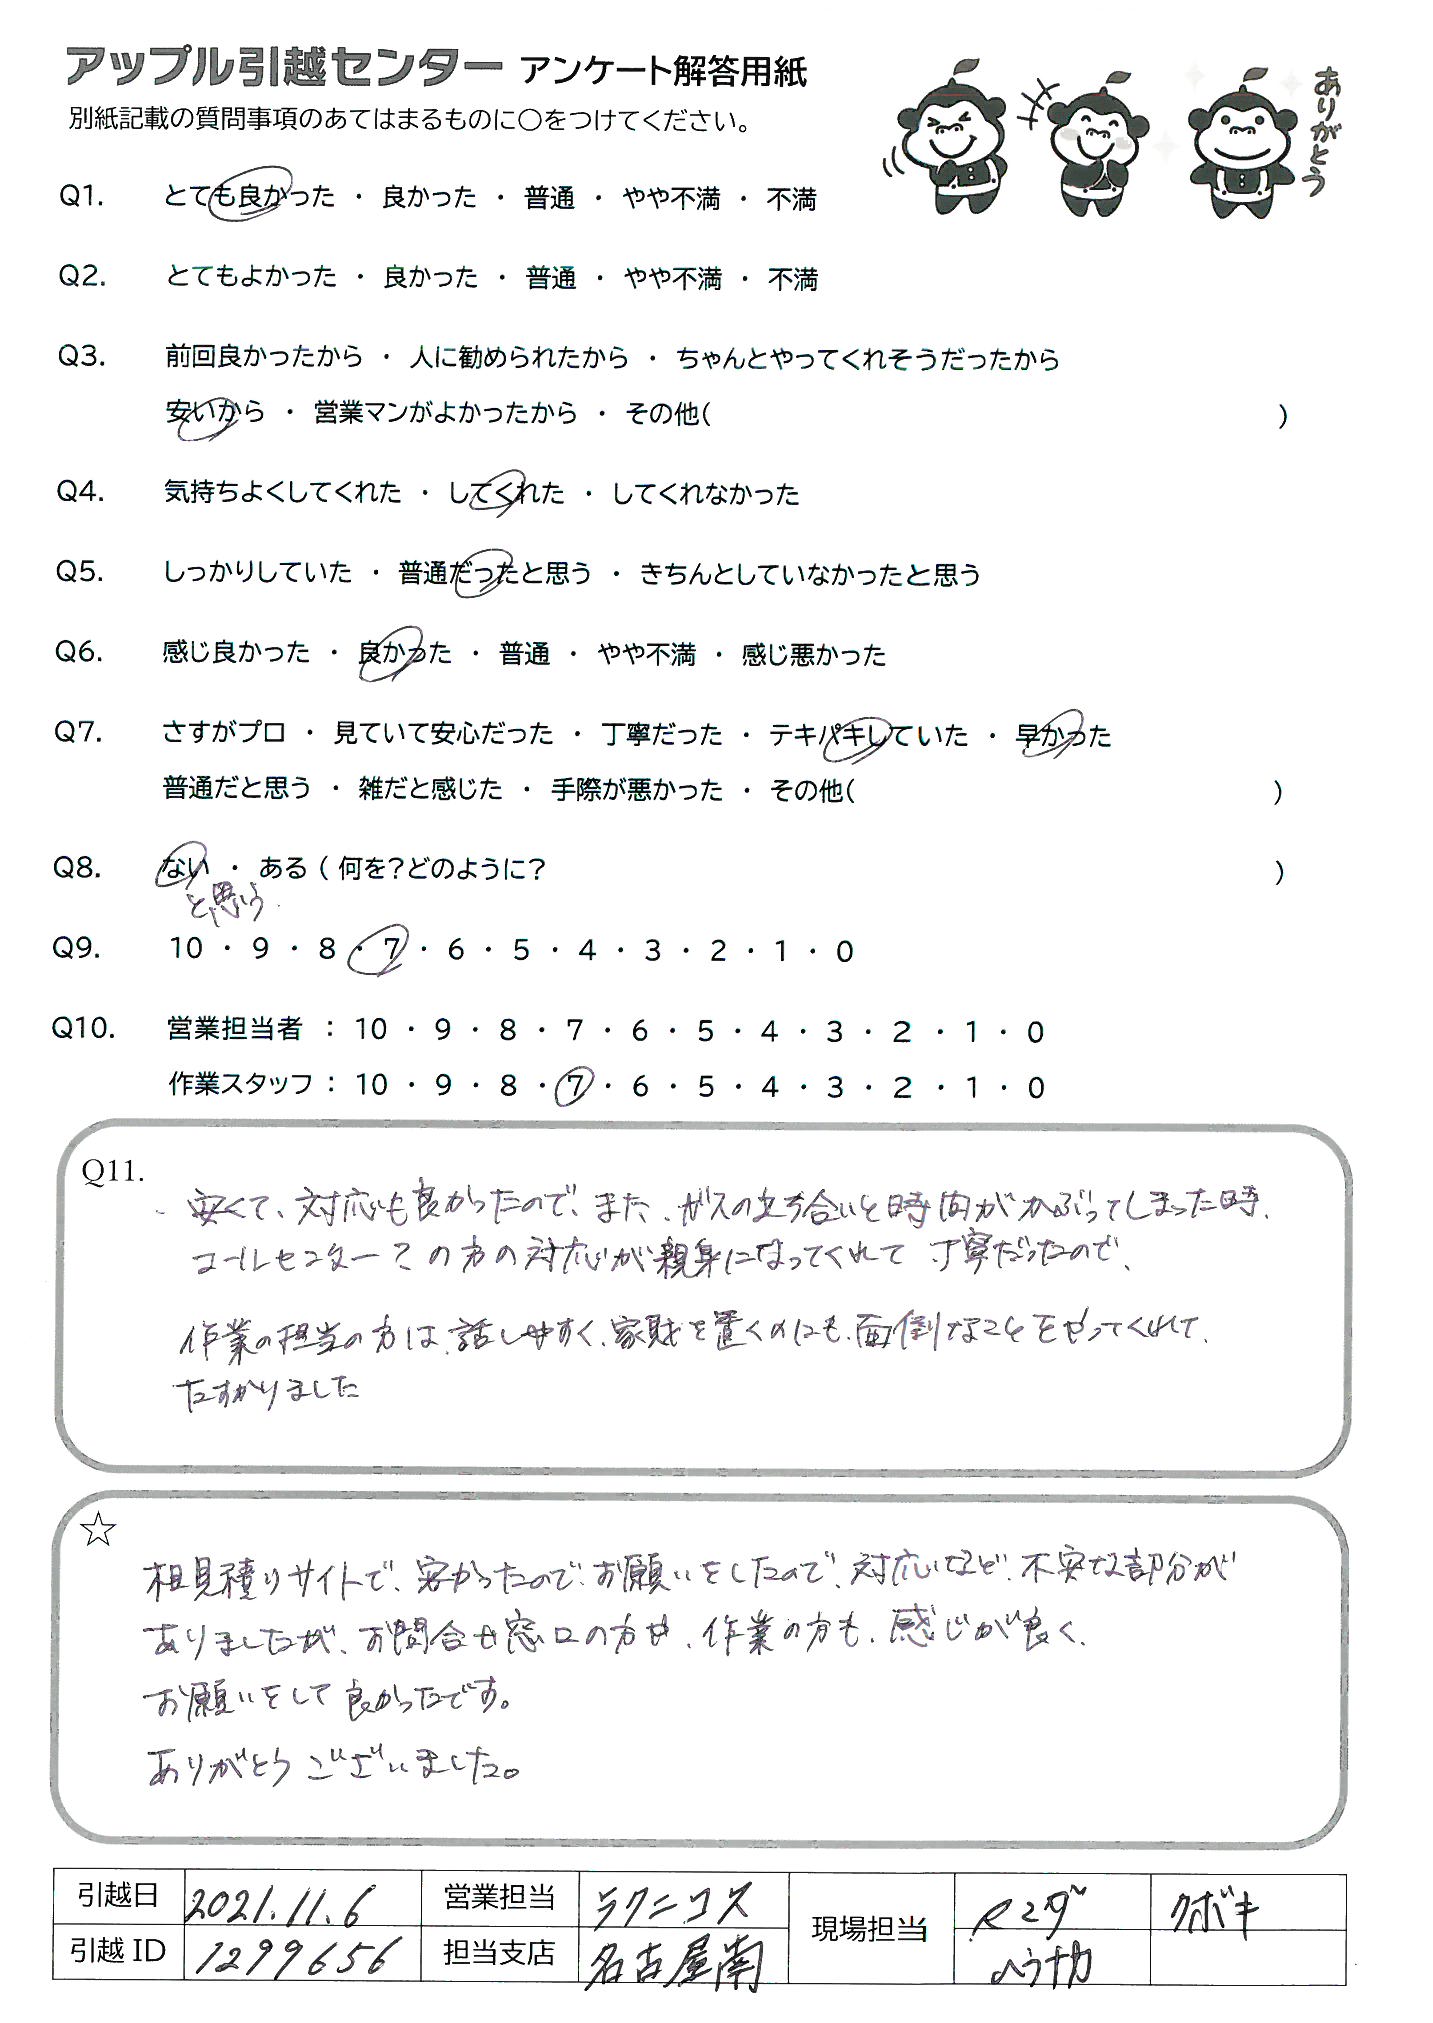 アップル引越センター アンケート解答用紙
別紙記載の質問事項のあてはまるものに〇をつけてください。
ありがとう
Q1. とても良かった ・ 良かった ・ 普通 ・ やや不満 ・ 不満
Q2. とてもよかった ・ 良かった ・ 普通 ・ やや不満 ・ 不満
Q3. 前回良かったから ・ 人に勧められたから ・ ちゃんとやってくれそうだったから
安いから ・ 営業マンがよかったから ・ その他( )
Q4. 気持ちよくしてくれた ・ してくれた ・ してくれなかった
Q5. しっかりしていた ・ 普通だったと思う ・ きちんとしていなかったと思う
Q6. 感じ良かった ・ 良かった ・ 普通 ・ やや不満 ・ 感じ悪かった
Q7. さすがプロ ・ 見ていて安心だった ・ 丁寧だった ・ テキパキしていた ・ 早かった
普通だと思う ・ 雑だと感じた ・ 手際が悪かった ・ その他( )
Q8. ない ・ ある ( 何を?どのように? )
と思う
Q9. 10 ・ 9 ・ 8 ・ 7 ・ 6 ・ 5 ・ 4 ・ 3 ・ 2 ・ 1 ・ 0
Q10. 営業担当者 : 10 ・ 9 ・ 8 ・ 7 ・ 6 ・ 5 ・ 4 ・ 3 ・ 2 ・ 1 ・ 0
作業スタッフ : 10 ・ 9 ・ 8 ・ 7 ・ 6 ・ 5 ・ 4 ・ 3 ・ 2 ・ 1 ・ 0
Q11.
安くて、対応も良かったので、また、ガスの立ち合いと時間がかぶってしまった時、
コールセンター?の方の対応が親身になってくれて丁寧だったので、
作業の担当の方は、話しやすく、家財を置くのにも、面倒なことをやってくれて、
たすかりました
☆
相見積りサイトで、安かったので、お願いをしたので、対応など、不安な部分が
ありましたが、お問合せ窓口の方や、作業の方も、感じが良く、
お願いをして良かったです。
ありがとうございました。
引越日 2021.11.6 営業担当 ラクニコス 現場担当 クボキ
引越 ID 1299656 担当支店 名古屋南